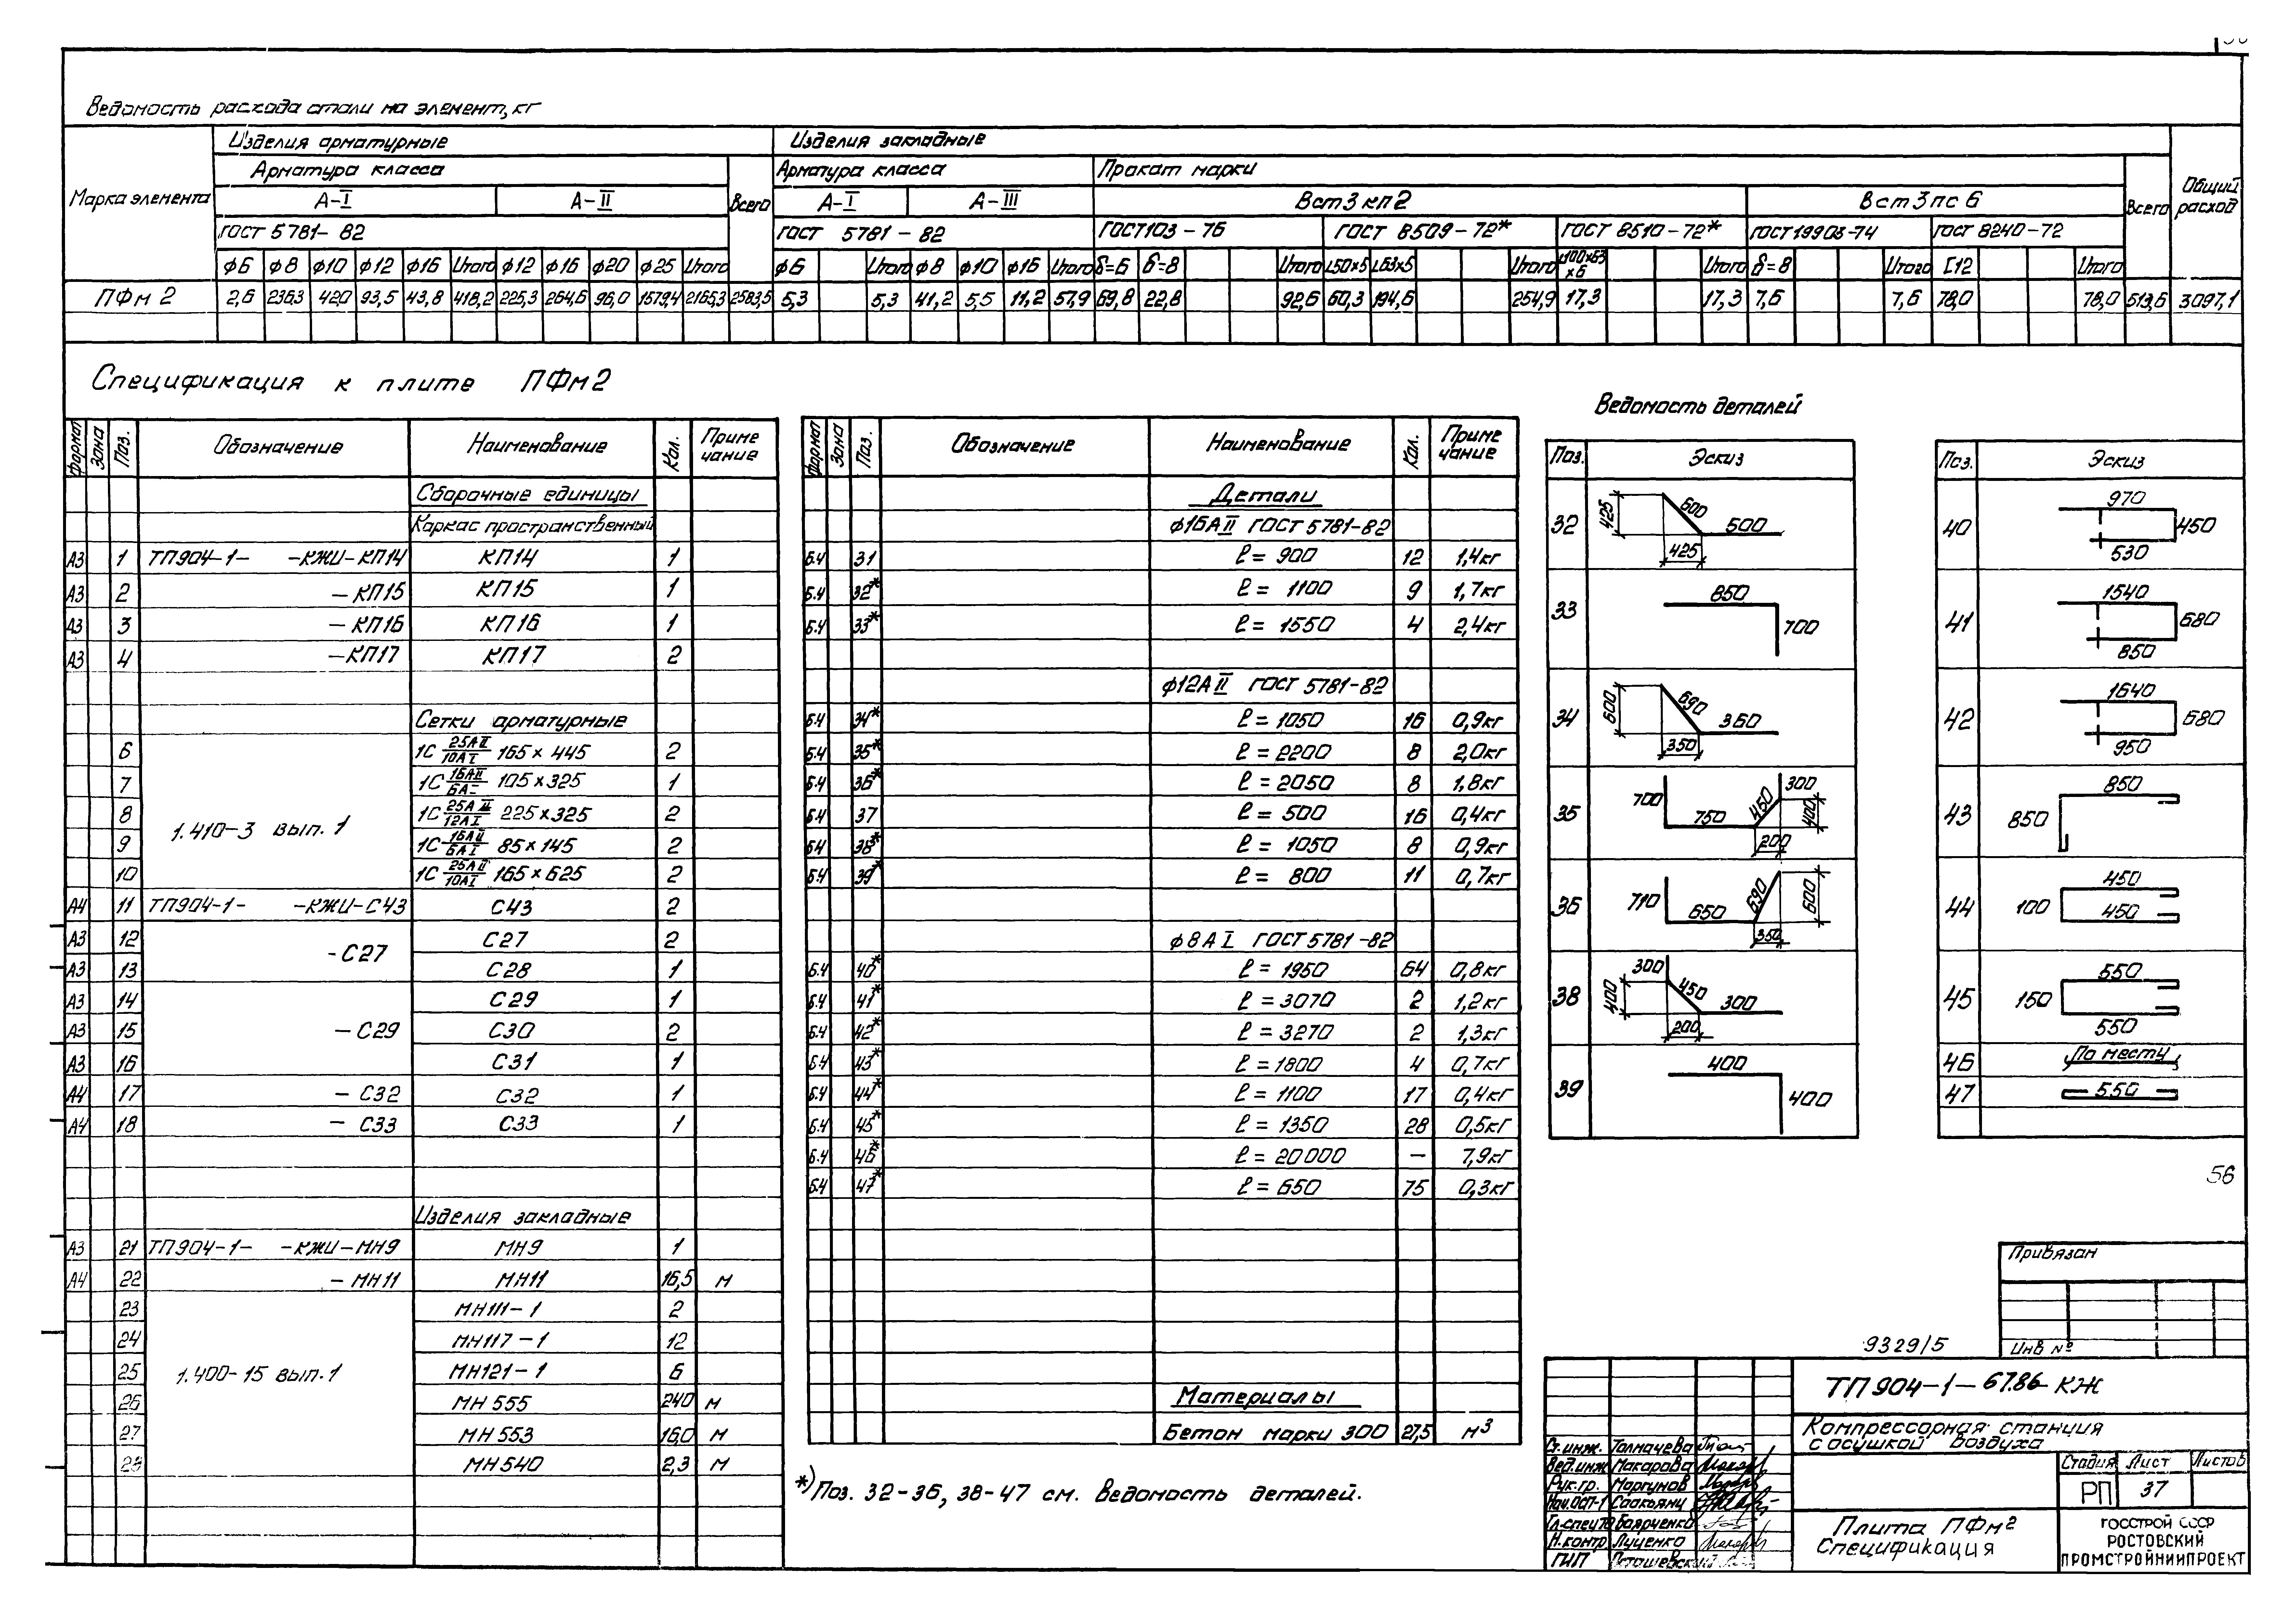 Ведомость расхода стали на элемент, кг
Марка элемента
Изделия арматурные
Изделия закладные
Общий расход
Арматура класса
Всего
Арматура класса
Прокат марки
Всего
А-I А-II А-I А-III Вст3кп2 Вст3пс6
ГОСТ 5781-82 ГОСТ 5781-82 ГОСТ103-76 ГОСТ 8509-72* ГОСТ 8510-72* ГОСТ19903-74 ГОСТ 8240-72
ф6 ф8 ф10 ф12 ф16 Итого ф12 ф16 ф20 ф25 Итого ф6 Итого ф8 ф10 ф16 Итого δ=6 δ=8 Итого L50×5 L63×5 Итого L100×63×6 Итого δ=8 Итого [12 Итого
ПФм2 2,6 236,3 42,0 93,5 43,8 418,2 225,3 264,6 96,0 1579,4 2165,3 2583,5 5,3 5,3 41,2 5,5 11,2 57,9 69,8 22,8 92,6 60,3 194,6 254,9 17,3 17,3 7,6 7,6 78,0 78,0 513,6 3097,1
Спецификация к плите ПФм2
Формат Зона Поз. Обозначение Наименование Кол. Приме чание
Сборочные единицы
Каркас пространственный
А3 1 ТП904-1- -КЖИ-КП14 КП14 1
А3 2 -КП15 КП15 1
А3 3 -КП16 КП16 1
А3 4 -КП17 КП17 2
Сетки арматурные
6 1С 25АII/10АI 165×445 2
7 1С 16АII/6АI 105×325 1
8 1С 25АII/12АI 225×325 2
1.410-3 вып. 1
9 1С 16АII/6АI 85×145 2
10 1С 25АII/10АI 165×625 2
А4 11 ТП904-1- -КЖИ-С43 С43 2
А3 12 -С27 С27 2
А3 13 С28 1
А3 14 С29 1
А3 15 -С29 С30 2
А3 16 С31 1
А4 17 -С32 С32 1
А4 18 -С33 С33 1
Изделия закладные
А3 21 ТП904-1- -КЖИ-МН9 МН9 1
А4 22 -МН11 МН11 16,5 м
23 МН111-1 2
24 МН117-1 12
25 1.400-15 вып.1 МН121-1 6
26 МН555 240 м
27 МН553 16,0 м
28 МН540 2,3 м
Формат Зона Поз. Обозначение Наименование Кол. Приме чание
Детали
ф16АII ГОСТ 5781-82
Б.4 31 ℓ= 900 12 1,4кг
Б.4 32* ℓ= 1100 9 1,7кг
Б.4 33* ℓ= 1550 4 2,4кг
ф12АII ГОСТ 5781-82
Б.4 34* ℓ=1050 16 0,9кг
Б.4 35* ℓ=2200 8 2,0кг
Б.4 36* ℓ=2050 8 1,8кг
Б.4 37 ℓ=500 16 0,4кг
Б.4 38* ℓ= 1050 8 0,9кг
Б.4 39* ℓ= 800 11 0,7кг
ф8АI ГОСТ 5781-82
Б.4 40* ℓ= 1950 64 0,8кг
Б.4 41* ℓ=3070 2 1,2кг
Б.4 42* ℓ=3270 2 1,3кг
Б.4 43* ℓ=1800 4 0,7кг
Б.4 44* ℓ=1100 17 0,4кг
Б.4 45* ℓ= 1350 28 0,5кг
Б.4 46* ℓ=20000 — 7,9кг
Б.4 47* ℓ=650 75 0,3кг
Материалы
Бетон марки 300 27,5 м³
*) Поз. 32-36, 38-47 см. Ведомость деталей.
Ведомость деталей
Поз. Эскиз
32 425 600 500 425
33 850 700
34 600 690 350 360
35 700 750 450 300 400 200
36 710 650 690 600 350
38 300 400 450 300 200
39 400 400
Поз. Эскиз
40 970 450 530
41 1540 680 850
42 1640 680 950
43 850 850
44 450 100 450
45 550 150 550
46 По месту
47 550
56
Привязан
Инв №
9329/5
ТП904-1-67.86 КЖ
Компрессорная станция
с осушкой воздуха
Ст.инж. Толмачева
Вед.инж Макарова
Рук.гр. Моргунов
Нач.ОСП-1 Саакьянц
Гл.спец Боярченко
Н.контр Луценко
ГИП
Стадия Лист Листов
РП 37
Плита ПФм2
Спецификация
ГОССТРОЙ СССР
РОСТОВСКИЙ
ПРОМСТРОЙНИИПРОЕКТ